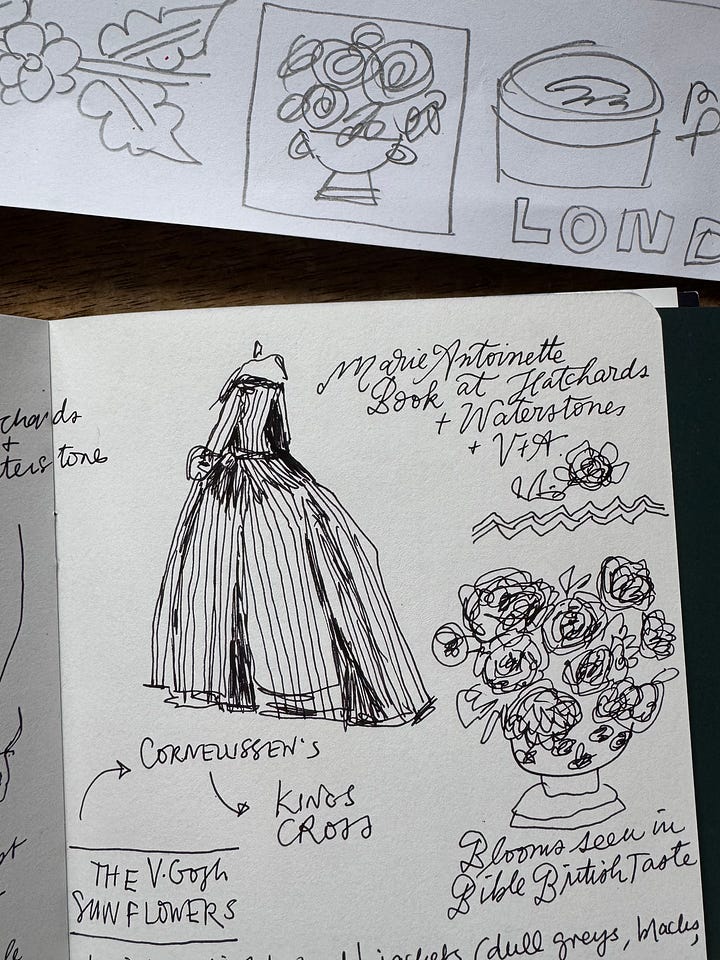 LOND
chards
+
terstones
Marie Antoinette
Book at Hatchards
+ Waterstones
+ V+A
CORNELISSEN'S
KINGS
CROSS
THE V. Gogh
SUNFLOWERS
Blooms seen in
Bible British Taste
jackets (dull greys, blacks,